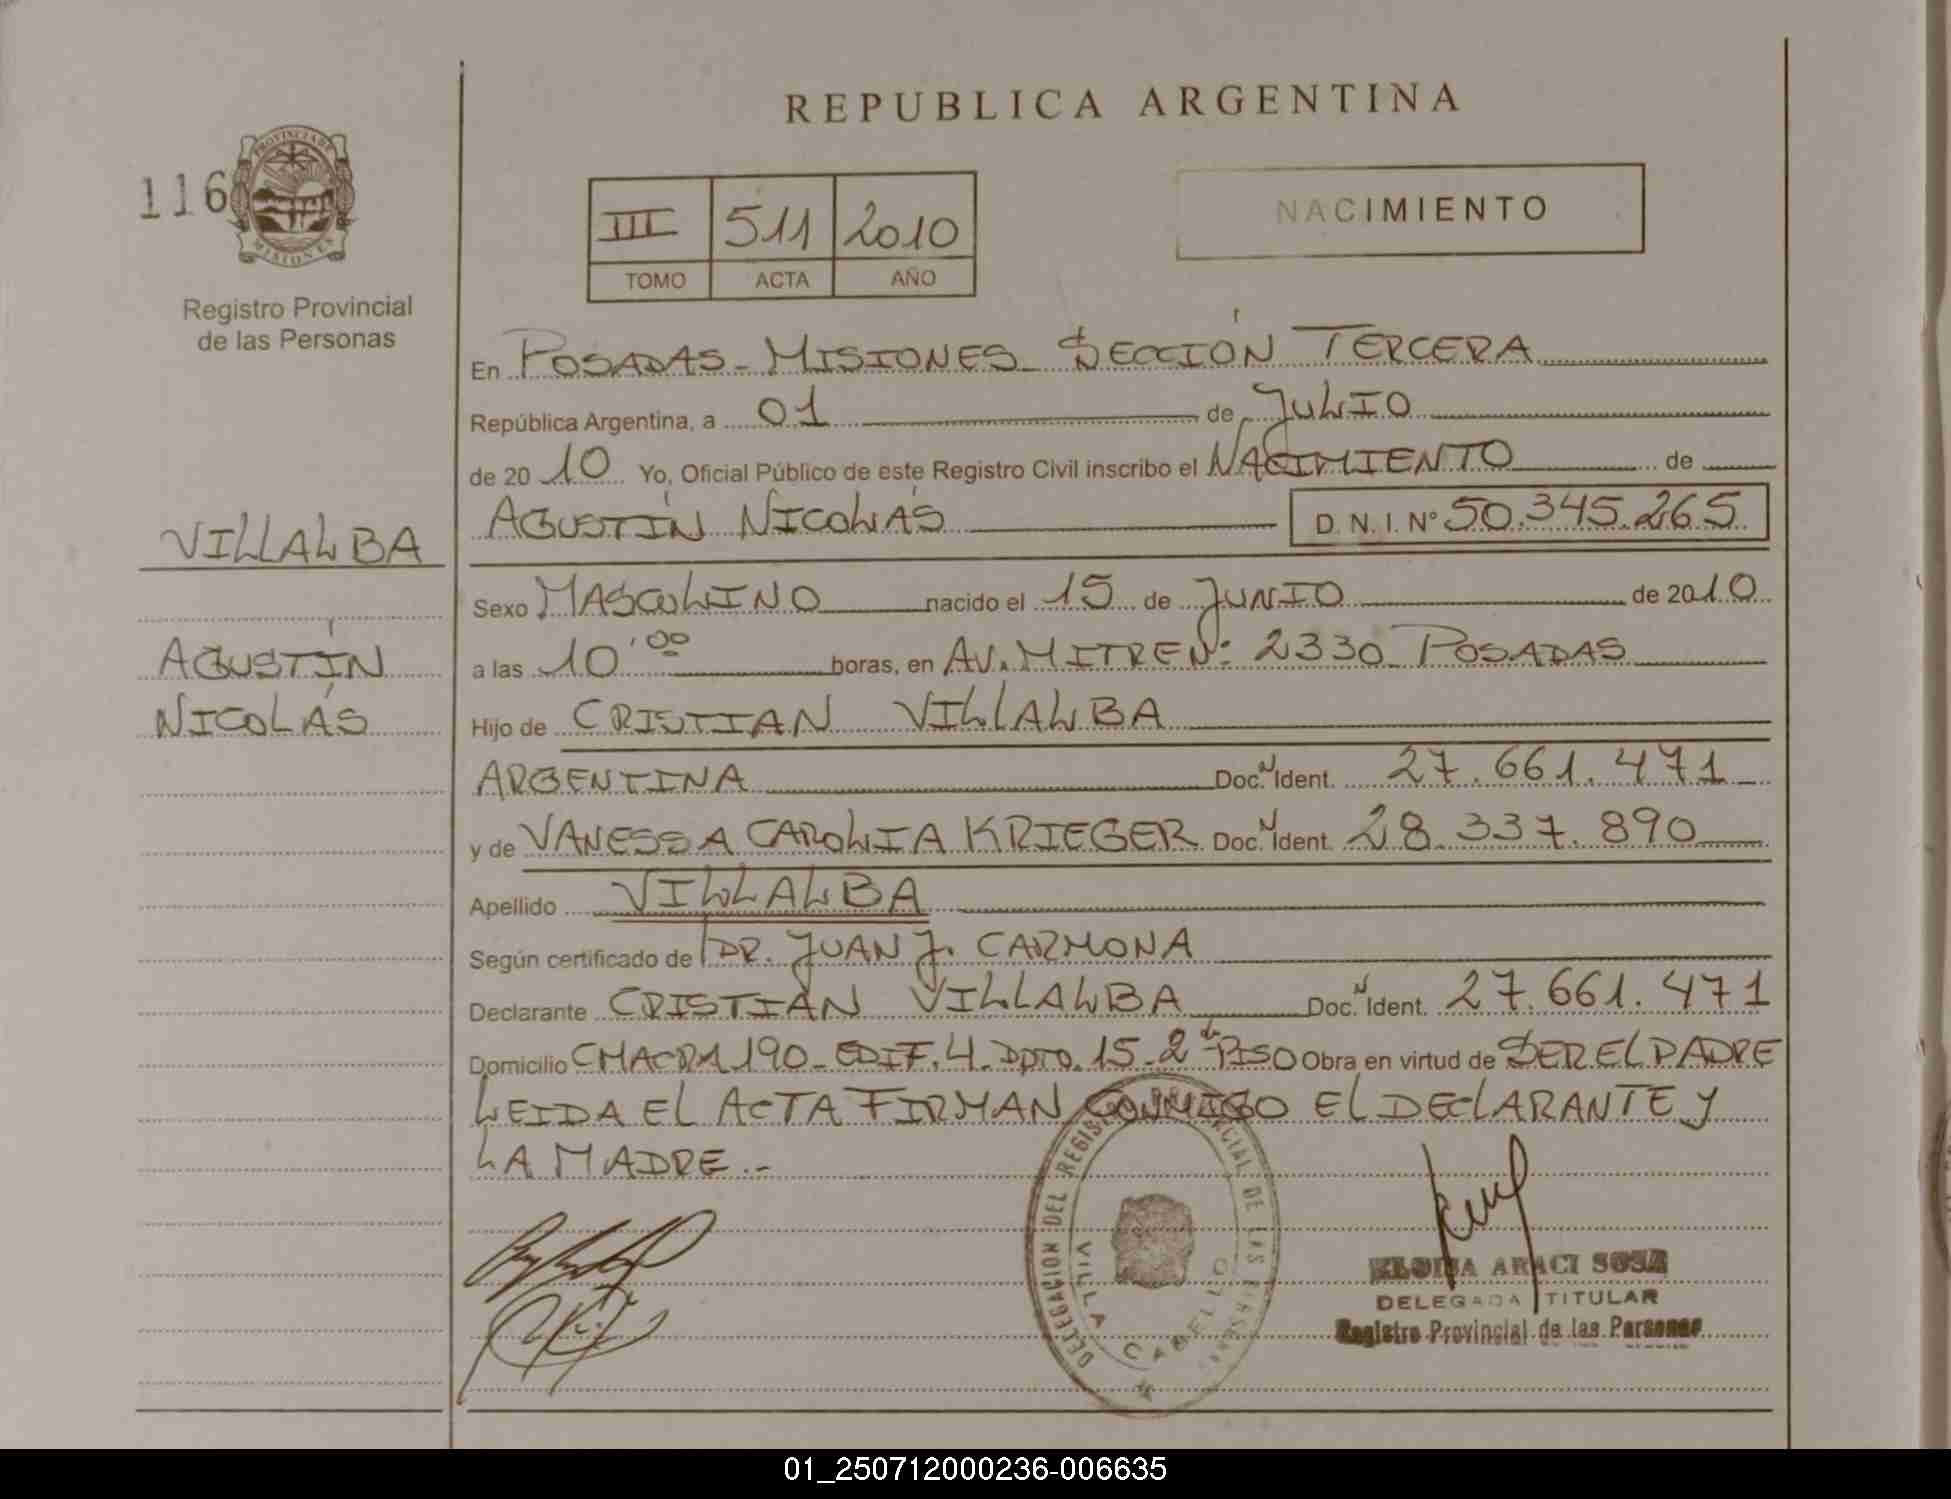 REPUBLICA ARGENTINA
116
PROVINCIA DE
MISIONES
Registro Provincial
de las Personas
III 511 2010
TOMO ACTA AÑO
NACIMIENTO
En POSADAS - MISIONES SECCIÓN TERCERA
República Argentina, a 01 de JULIO
de 2010 Yo, Oficial Público de este Registro Civil inscribo el NACIMIENTO de
AGUSTÍN NICOLÁS D.N.I. Nº 50.345.265
VILLALBA
AGUSTÍN
NICOLÁS
Sexo MASCULINO nacido el 15 de JUNIO de 2010
a las 10'00 horas, en AV. MITRE Nº: 2330 POSADAS
Hijo de CRISTIAN VILLALBA
ARGENTINA Doc. N Ident. 27.661.471
y de VANESSA CAROLIA KRIEGER Doc. N Ident. 28.337.890
Apellido VILLALBA
Según certificado de DR. JUAN J. CARMONA
Declarante CRISTIAN VILLALBA Doc. N Ident. 27.661.471
Domicilio CHACRA 190 - EDIF. 4. DPTO. 15 - 2do PISO Obra en virtud de SER EL PADRE
LEIDA EL ACTA FIRMAN CONMIGO EL DECLARANTE Y
LA MADRE.-
DELEGACION DEL REGISTRO PROVINCIAL DE LAS PERSONAS
VILLA CABELLO
ELOISA ARACI SOSA
DELEGADA TITULAR
Registro Provincial de las Personas
01_250712000236-006635